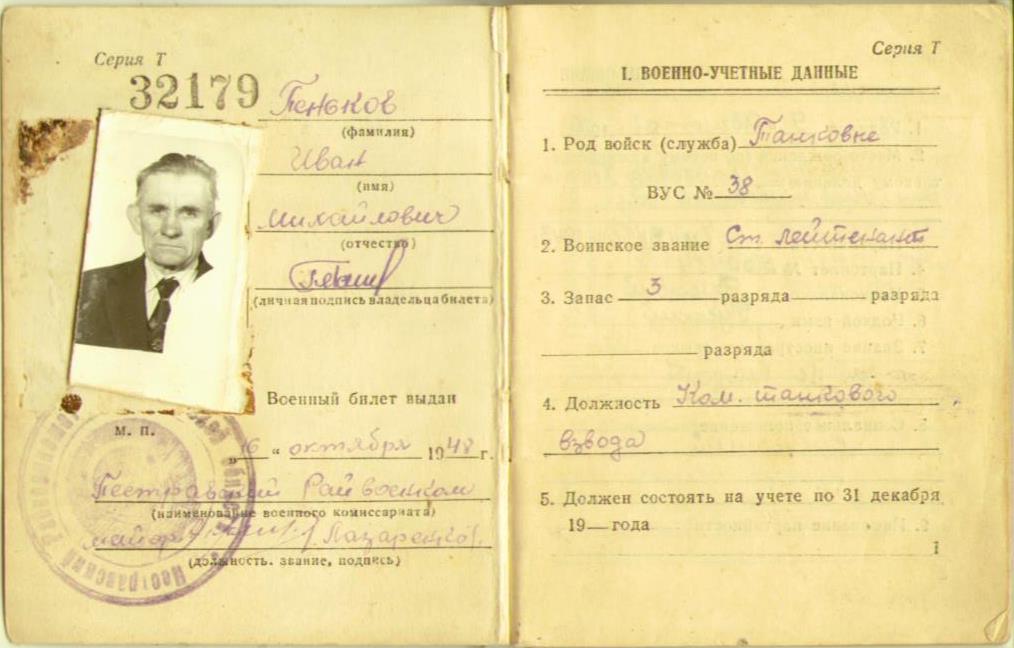 Серия Т
32179
Пеньков
(фамилия)
Иван
(имя)
Михайлович
(отчество)
(личная подпись владельца билета)
Военный билет выдан
М. П.
„16“ октября 1948 г.
Пестравский Райвоенком
(наименование военного комиссариата)
майор
(должность, звание, подпись)
Серия Т
I. ВОЕННО-УЧЕТНЫЕ ДАННЫЕ
1. Род войск (служба) Танковые
ВУС № 38
2. Воинское звание Ст. лейтенант
3. Запас 3 разряда разряда
разряда
4. Должность Ком. танкового
взвода
5. Должен состоять на учете по 31 декабря
19— года
1